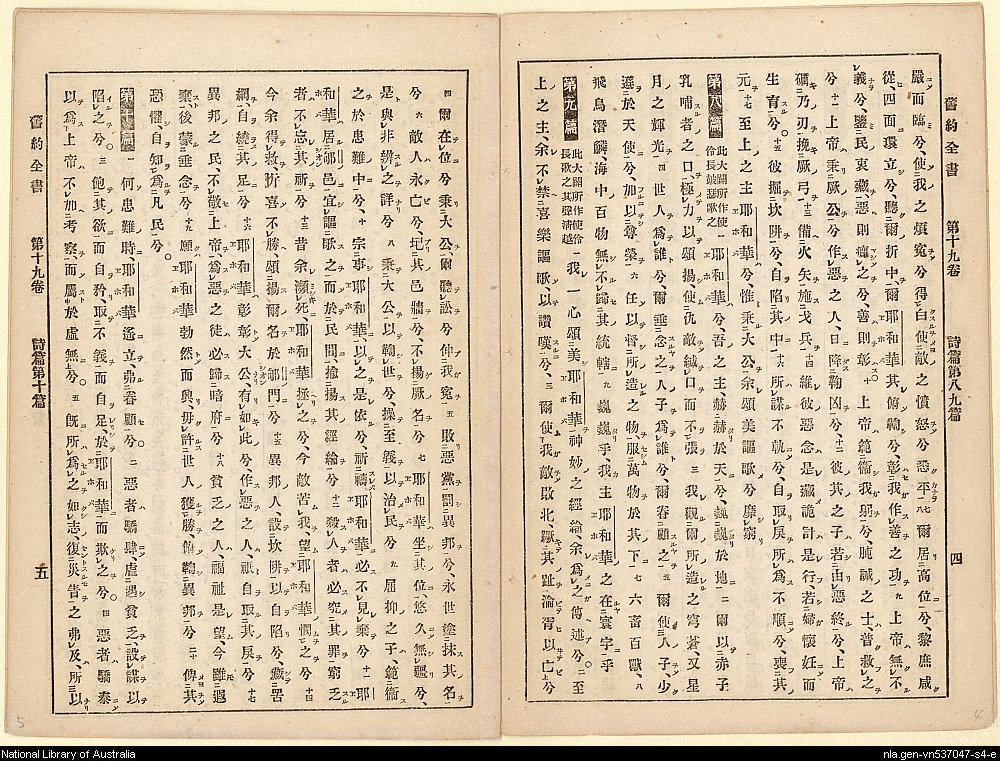 舊約全書 第十九卷 詩篇第八九篇 四
嚴而臨兮、使我之煩冤兮得白、使敵之憤怒兮悉平。七八爾居高位兮、黎庶咸
從、四面環立兮、聽爾折中、爾耶和華其俯鞫兮、彰我作善之功、九上帝無不
義兮、鑒民衷藏、惡則癉之兮、善則彰。十上帝範衞我躬兮、誠之士普救之
兮、十一上帝乘厥公兮、作惡之人、日降鞫凶兮、十二彼其之子、若由惡終兮、上帝
礪乃刃、挽厥弓、十三備火矢、施戈兵、十四維彼惡念是藏、詭計是行、若婦懷妊而
生育兮。十五彼掘坎阱兮、自陷其中、十六所謀不軌兮、自取戾、所爲不順兮、喪其
元、十七至上之主耶和華兮、惟乘大公、余頌美謳歌兮靡窮、
第八篇 此大闢所作使伶長鼓瑟歌之 一耶和華兮、吾之主、赫赫於天兮、巍巍於地、二爾以赤子
乳哺者之口、極力以頌揚、使仇敵緘口而不張、三我觀爾所造之穹蒼、又星
月之輝光、四世人爲誰兮、爾垂念之、人子爲誰兮、爾眷顧之、五爾使人子、少
遜於天使兮、加以尊榮、六任以督所造之物、服萬物於其下、七六畜百獸、八
飛鳥潛鱗、海中百物、無不歸其統轄、九巍巍乎、我主耶和華之在寰宇乎
第九篇 此大闢所作使伶長歌之其聲淸越 一我一心頌美耶和華、神妙之經綸、余爲之傳述兮。二至
上之主、余不禁喜樂謳歌、以讚嘆兮、三爾使我敵敗北、蹶其趾、淪胥以亡兮
四爾在位兮、乘大公、爾聽訟兮、伸我冤、五敗惡黨、罰異邦兮、永世塗抹其名
兮、六敵人永亡兮、圮其邑牆兮、不揚厥名兮、七耶和華坐其位、悠久無疆兮、
是與非辨之詳兮、八乘大公以鞫世兮、操至義以治民兮、九屈抑之子、範衞
之於患難中兮、十宗事耶和華、以之是依兮、祈禱耶和華、必不見棄兮、十一耶
和華居郇邑、宜謳歌之、而於民間、揄揚其經綸兮、十二殺人者必究其罪、窮乏
者不忘其祈兮、十三昔余瀕死、耶和華拯之兮、今敵苦我、望耶和華憫之兮、十四
今余得救、忻喜不勝、頌揚爾名於郇門兮、十五異邦人設坎阱以自陷兮、藏罟
網自繞其足兮、十六耶和華彰彰大公、有如此兮、作惡之人、祇自取其戾兮、十七
異邦之民、不敬上帝、爲惡之徒、必歸暗府兮、十八貧乏之人、福祉是望、今雖遐
棄、後蒙垂念兮、十九願耶和華勃然而興、毋許世人獲勝、俯鞫異邦兮、二十俾其
恐懼、自知爲凡民兮。
第十篇 一何患難時、耶和華遙立、弗眷顧兮。二惡者驕肆虐遇貧乏、設謀以
陷之兮。三飽其欲而自矜、取不義而自足、於耶和華而欺之兮。四惡者驕泰
以爲上帝不加考察、而屬於虛無兮。五旣所爲之如志、復災眚之弗及、所以
舊約全書 第十九卷 詩篇第十篇 五
5
4
National Library of Australia
nla.gen-vn537047-s4-e